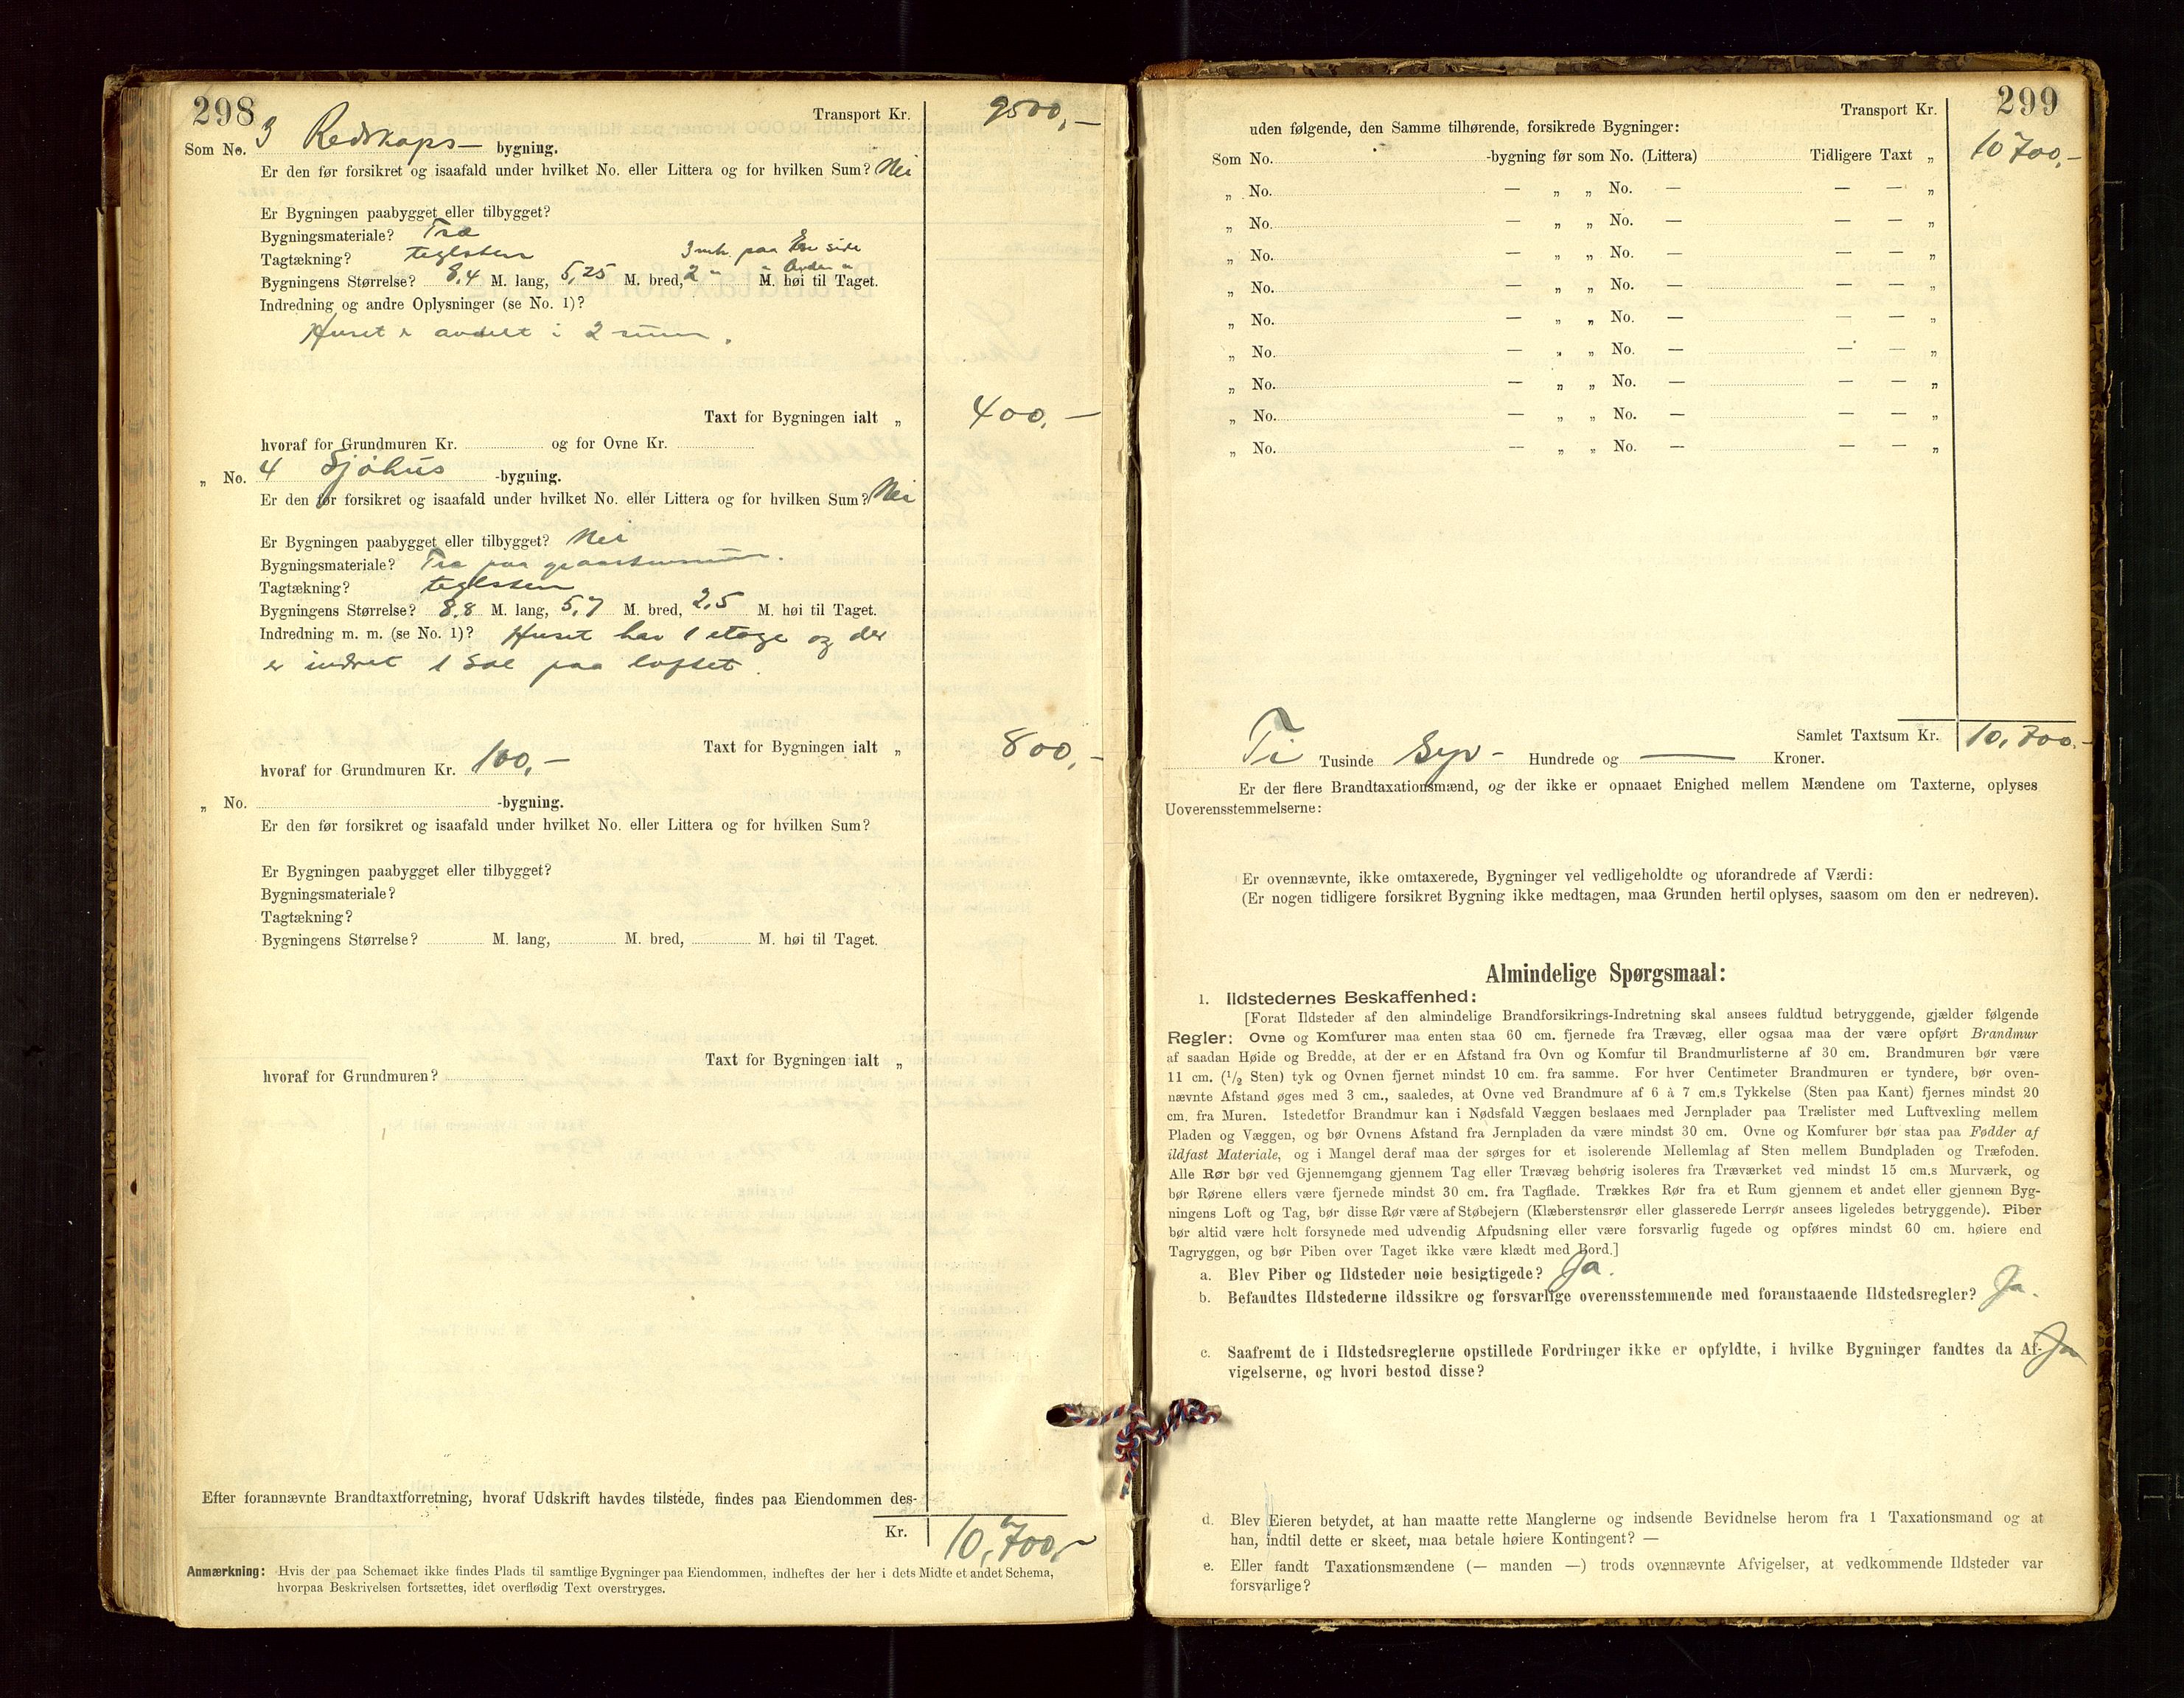 298
Transport Kr. 9500,—
Som No. 3 Redskaps— bygning.
Er den før forsikret og isaafald under hvilket No. eller Littera og for hvilken Sum? Nei
Er Bygningen paabygget eller tilbygget?
Bygningsmateriale? Træ
Tagtækning? teglsten 3 mtr. paa En side
Bygningens Størrelse? 8,4 M. lang, 5,25 M. bred, 2 " " Anden " M. høi til Taget.
Indredning og andre Oplysninger (se No. 1)?
Huset er avdelt i 2 rum.
Taxt for Bygningen ialt „ 400,—
hvoraf for Grundmuren Kr. og for Ovne Kr.
„ No. 4 Sjøhus -bygning.
Er den før forsikret og isaafald under hvilket No. eller Littera og for hvilken Sum? Nei
Er Bygningen paabygget eller tilbygget? Nei
Bygningsmateriale? Træ paa graastensmur.
Tagtækning? teglsten
Bygningens Størrelse? 8,8 M. lang, 5,7 M. bred, 2,5 M. høi til Taget.
Indredning m. m. (se No. 1)? Huset har 1 etage og der
er indret 1 Sal paa loftet.
Taxt for Bygningen ialt „ 800,—
hvoraf for Grundmuren Kr. 100,—
„ No. -bygning.
Er den før forsikret og isaafald under hvilket No. eller Littera og for hvilken Sum?
Er Bygningen paabygget eller tilbygget?
Bygningsmateriale?
Tagtækning?
Bygningens Størrelse? M. lang, M. bred, M. høi til Taget.
Taxt for Bygningen ialt „
hvoraf for Grundmuren?
Efter forannævnte Brandtaxtforretning, hvoraf Udskrift havdes tilstede, findes paa Eiendommen des-
Kr. 10,700,—
Anmærkning: Hvis der paa Schemaet ikke findes Plads til samtlige Bygninger paa Eiendommen, indheftes der her i dets Midte et andet Schema,
hvorpaa Beskrivelsen fortsættes, idet overflødig Text overstryges.
299
Transport Kr. 10700,—
uden følgende, den Samme tilhørende, forsikrede Bygninger:
Som No. -bygning før som No. (Littera) Tidligere Taxt „
„ No. — „ „ No. — — — „
„ No. — „ „ No. — — — „
„ No. — „ „ No. — — — „
„ No. — „ „ No. — — — „
„ No. — „ „ No. — — — „
„ No. — „ „ No. — — — „
„ No. — „ „ No. — — — „
„ No. — „ „ No. — — — „
„ No. — „ „ No. — — — „
Samlet Taxtsum Kr. 10,700.—
Ti Tusinde Syv — Hundrede og — Kroner.
Er der flere Brandtaxationsmænd, og der ikke er opnaaet Enighed mellem Mændene om Taxterne, oplyses
Uoverensstemmelserne:
Er ovennævnte, ikke omtaxerede, Bygninger vel vedligeholdte og uforandrede af Værdi:
(Er nogen tidligere forsikret Bygning ikke medtagen, maa Grunden hertil oplyses, saasom om den er nedreven).
Almindelige Spørgsmaal:
1. Ildstedernes Beskaffenhed:
[Forat Ildsteder af den almindelige Brandforsikrings-Indretning skal ansees fuldtud betryggende, gjælder følgende
Regler: Ovne og Komfurer maa enten staa 60 cm. fjernede fra Trævæg, eller ogsaa maa der være opført Brandmur
af saadan Høide og Bredde, at der er en Afstand fra Ovn og Komfur til Brandmurlisterne af 30 cm. Brandmuren bør være
11 cm. (1/2 Sten) tyk og Ovnen fjernet mindst 10 cm. fra samme. For hver Centimeter Brandmuren er tyndere, bør oven-
nævnte Afstand øges med 3 cm., saaledes, at Ovne ved Brandmure af 6 à 7 cm.s Tykkelse (Sten paa Kant) fjernes mindst 20
cm. fra Muren. Istedetfor Brandmur kan i Nødsfald Væggen beslaaes med Jernplader paa Trælister med Luftvexling mellem
Pladen og Væggen, og bør Ovnens Afstand fra Jernpladen da være mindst 30 cm. Ovne og Komfurer bør staa paa Fødder af
ildfast Materiale, og i Mangel deraf maa der sørges for et isolerende Mellemlag af Sten mellem Bundpladen og Træfoden.
Alle Rør bør ved Gjennemgang gjennem Tag eller Trævæg behørig isoleres fra Træværket ved mindst 15 cm.s Murværk, og
bør Rørene ellers være fjernede mindst 30 cm. fra Tagflade. Trækkes Rør fra et Rum gjennem et andet eller gjennem Byg-
ningens Loft og Tag, bør disse Rør være af Støbejern (Klæberstensrør eller glasserede Lerrør ansees ligeledes betryggende). Piber
bør altid være helt forsynede med udvendig Afpudsning eller være forsvarlig fugede og opføres mindst 60 cm. høiere end
Tagryggen, og bør Piben over Taget ikke være klædt med Bord.]
a. Blev Piber og Ildsteder nøie besigtigede? Ja.
b. Befandtes Ildstederne ildssikre og forsvarlige overensstemmende med foranstaaende Ildstedsregler? Ja.
c. Saafremt de i Ildstedsreglerne opstillede Fordringer ikke er opfyldte, i hvilke Bygninger fandtes da Af- Ja
vigelserne, og hvori bestod disse?
d. Blev Eieren betydet, at han maatte rette Manglerne og indsende Bevidnelse herom fra 1 Taxationsmand og at
han, indtil dette er skeet, maa betale høiere Kontingent? —
e. Eller fandt Taxationsmændene (— manden —) trods ovennævnte Afvigelser, at vedkommende Ildsteder var
forsvarlige?